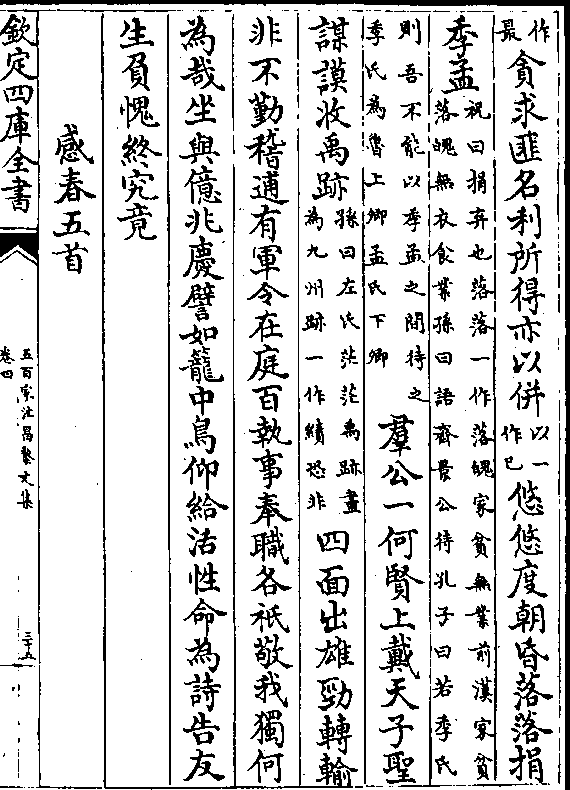 作最貪求匪名利所得亦以併以一作已悠悠度朝昏落落捐
季孟祝曰捐弃也落落一作落魄家貧無業前漢家貧落魄無衣食業孫曰語齊景公待孔子曰若季氏
則吾不能以季孟之間待之季氏為魯上卿孟氏下卿羣公一何賢上戴天子聖
謀謨收禹跡孫曰左氏茫茫禹跡畫為九州跡一作績恐非四面出雄勁轉輸
非不勤稽逋有軍令在庭百執事奉職各祇敬我獨何
為哉坐與億兆慶譬如籠中鳥仰給活性命為詩告友
生負愧終究竟
感春五首
欽定四庫全書
五百家注昌黎文集
卷四
三十五